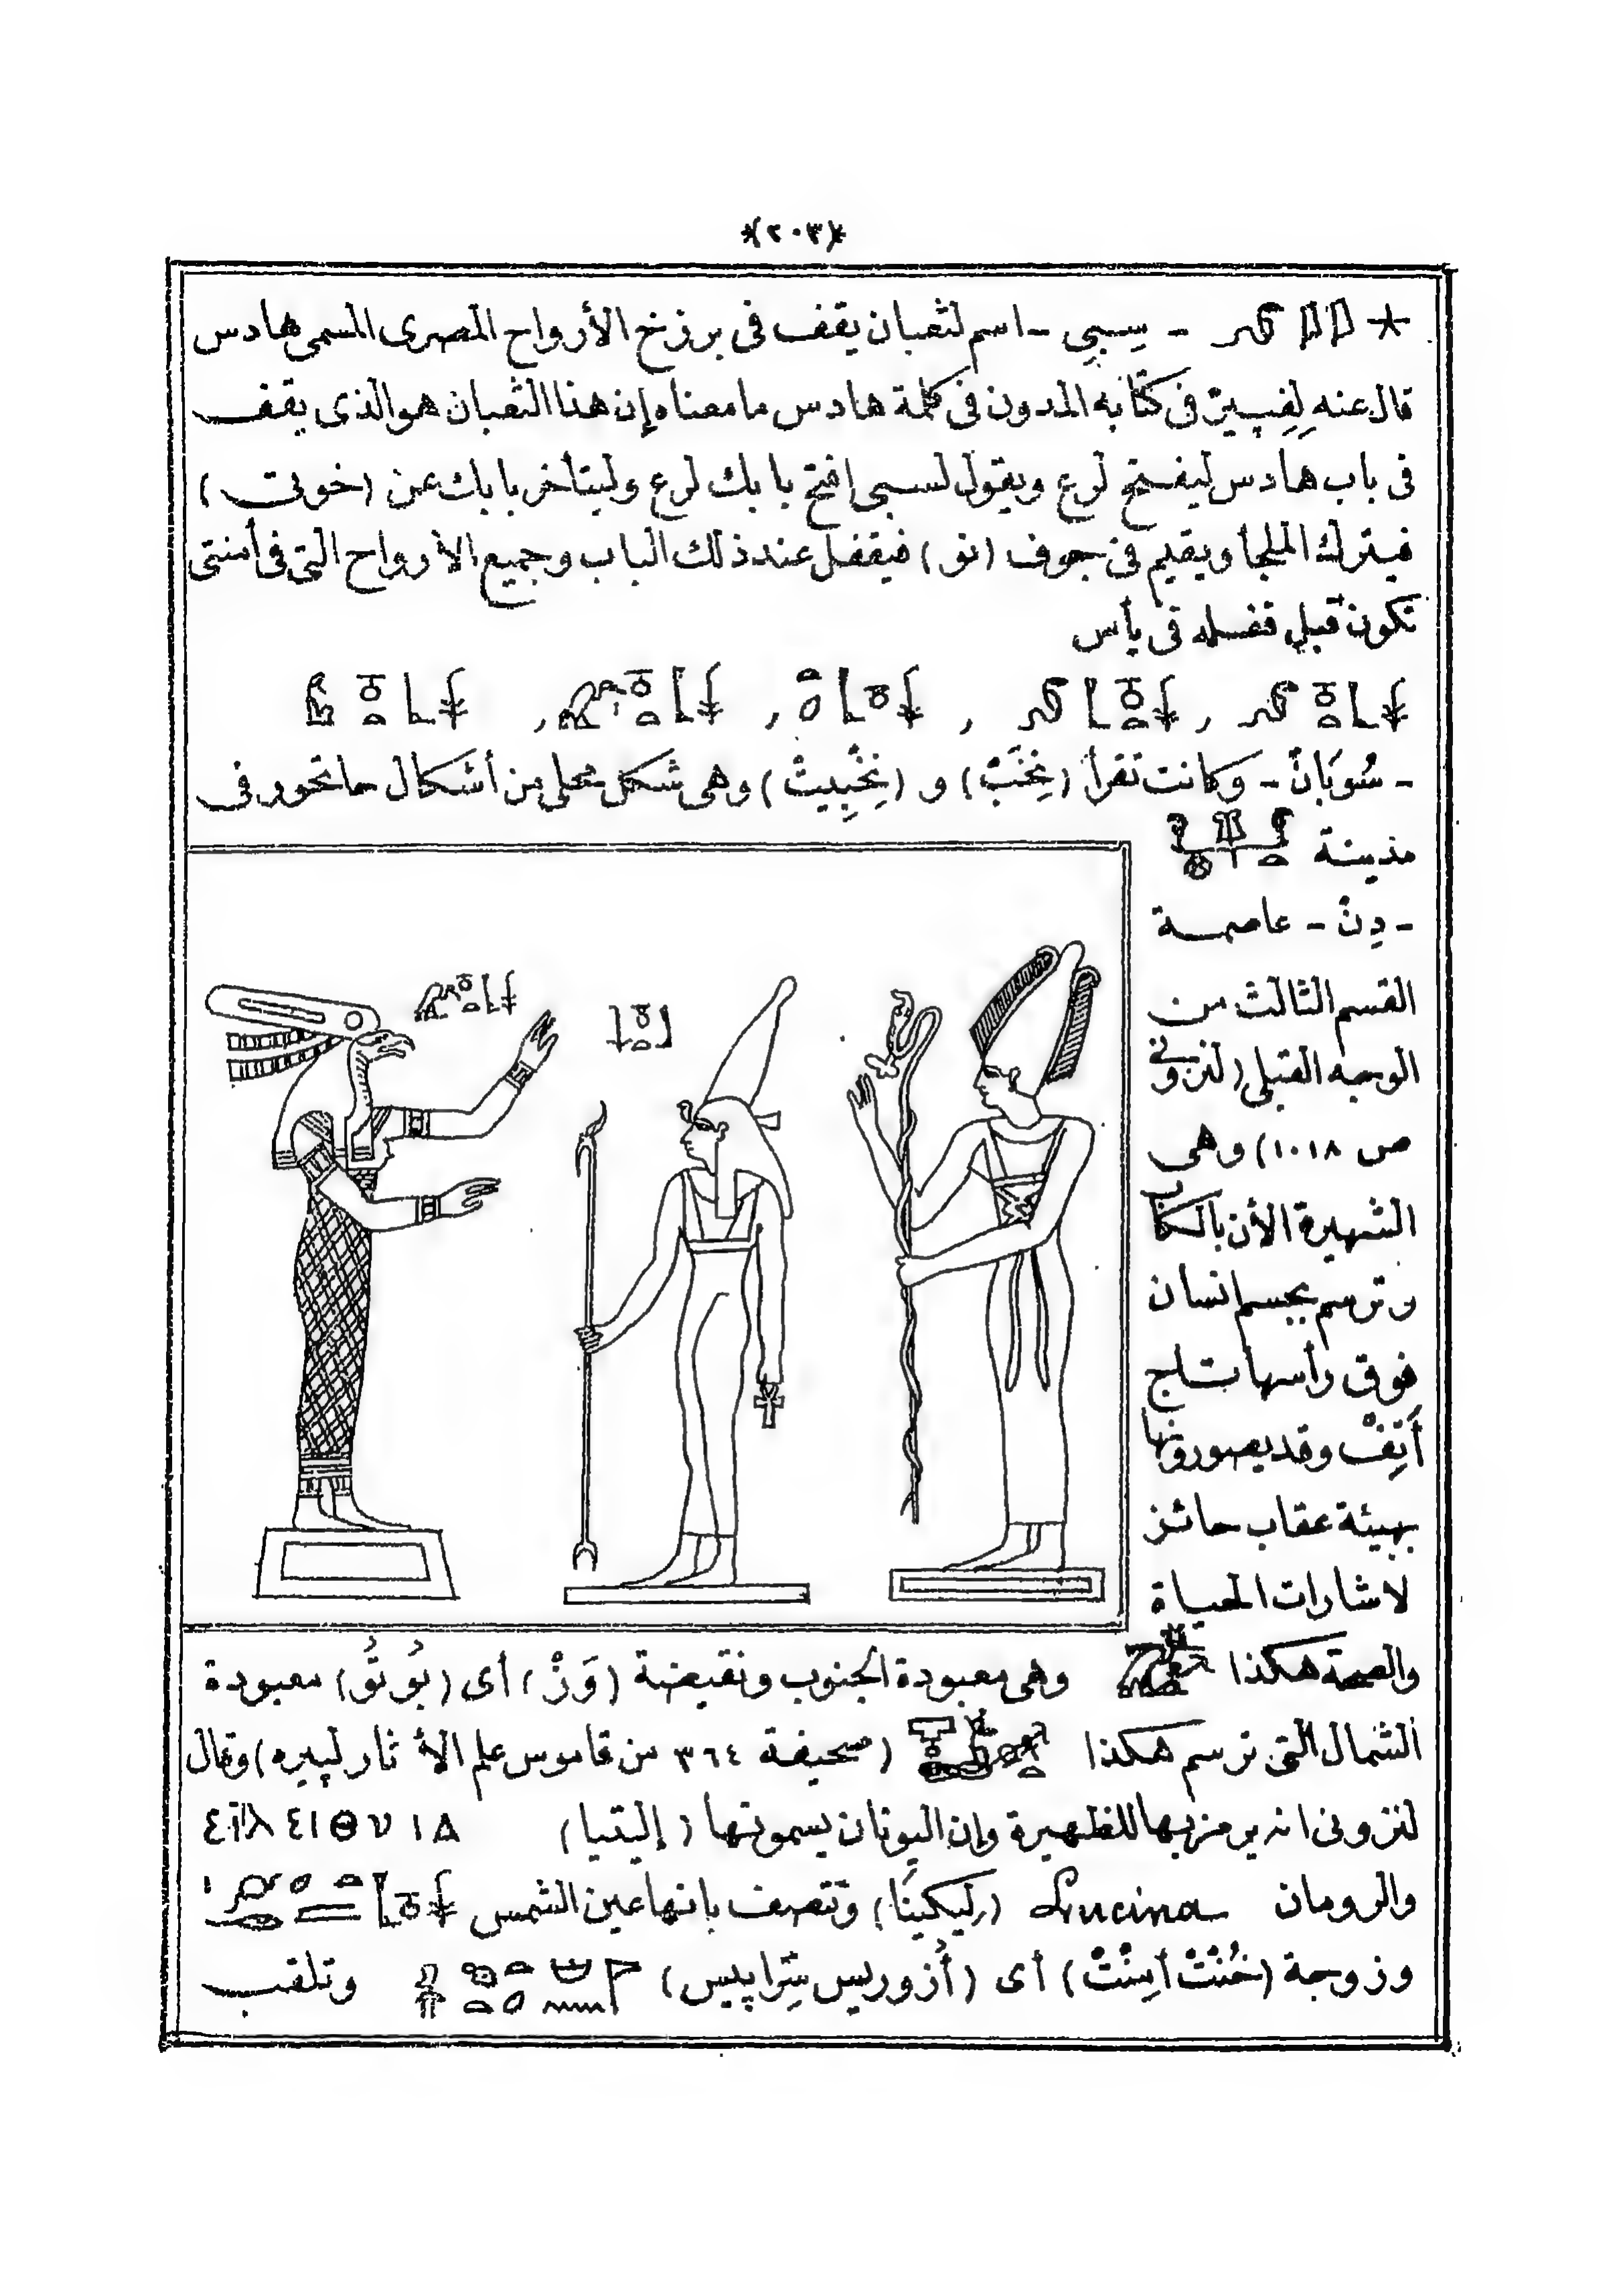 *(٢٠٣)*
- سِبِي - اسم لثعبان يقف فى برزخ الأرواح المصرى المسمى هادس
قال عنه لِفِيبِيرْ فى كتابه المدون فى كلمة هادس ما معناه إن هذا الثعبان هو الذى يقف
فى باب هادس ليفتح لرع ويقول لسبى إفتح بابك لرع وليتأخر بابك عن (خوتى)
فيترك الملجأ ويقيم فى جوف (نو) فيقفل عند ذلك الباب وجميع الأرواح التى فى أمنتى
تكون قبلى قفله فى يأس
- سُوبَانْ - وكانت تقرأ (نِخَبْ) و (نِخْبِيتْ) وهى شكل محلى من أشكال حاتحور فى
مدينة
- دِنْ - عاصمة
القسم الثالث من
الوجه القبلى (لنزونى
ص ١٠١٨) وهى
الشهيرة الأن بالكاب
وترسم بجسم انسان
فوق رأسها تاج
أَتِفْ وقد يصورونها
بهيئة عقاب حائز
لاشارات الحياة
والصحة هكذا وهى معبودة الجنوب ونقيضة (وَزْ) أى (بُوتُو) معبودة
الشمال التى ترسم هكذا (صحيفة ٣٦٤ من قاموس علم الأثار لپيره) وقال
لنزونى انه يرمز بها للظهيرة وإن اليونان يسمونها (إليتيا)
والرومان Lucina (لِيكينَا) وتتصف بانها عين الشمس
وزوجة (خُنْتْ أمِنْتْ) أى (أُزوريس سِرَاپيس) وتلقب